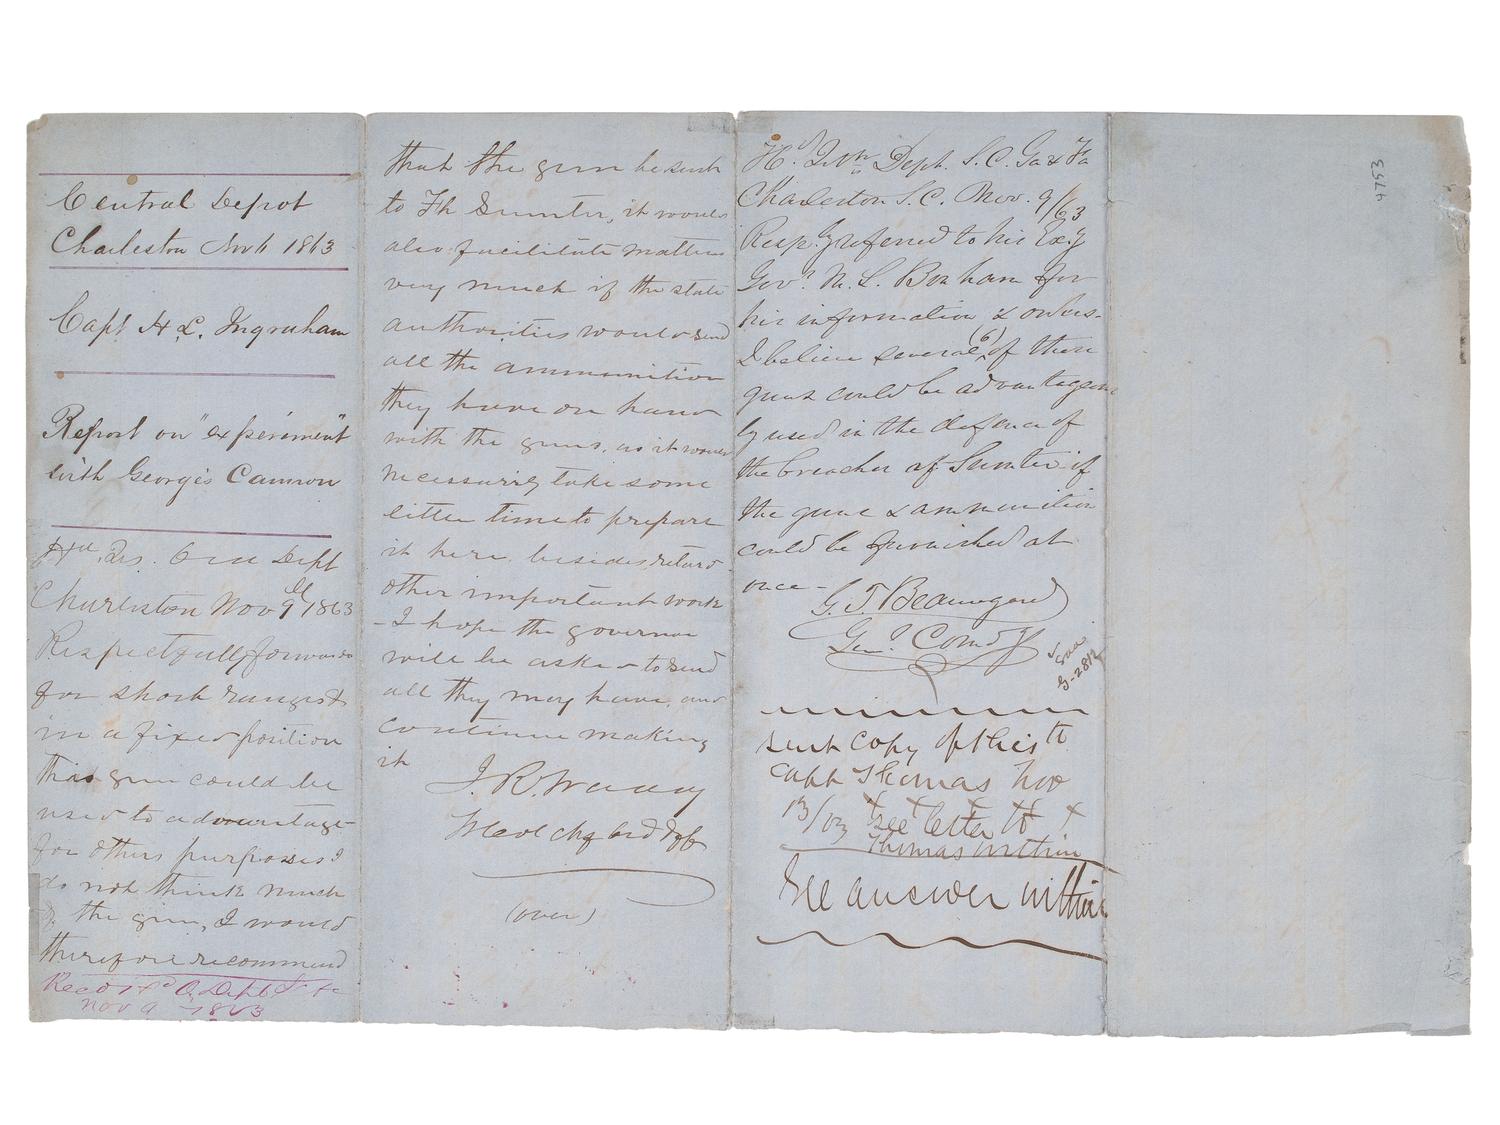 Central Depot
Charleston Nov 6 1863
Capt H. L. Ingraham
Report on "experiment"
with George's Cannon
Hd. Qrs. Ord Dept
Charleston Nov 9th 1863
Respectfully forwarded
for short ranges &
in a fixed position
this gun could be
used to advantage
for others purposes I
do not think much
of the gun, I would
therefore recommend
Recd O. Dept
Nov 9 1863
that the gun be sent
to Ft Sumter, it would
also facilitate matters
very much if the state
authorities would send
all the ammunition
they have on hand
with the guns, as it would
necessarily take some
little time to prepare
it here besides, retard
other important work
- I hope the governor
will be asked to send
all they may have and
continue making
it
J. R. Waddy
Lt Col chf ord Off
(over)
Hd. Qtrs. Dept. S. C. Ga & Fa
Charleston S. C. Nov. 9/63
Resply referred to his Exy
Govr. M. L. Bonham for
his information & orders-
I believe several (6) of these
guns could be advantageous
ly used in the defence of
the breaches of Sumter if
the guns & ammunition
could be furnished at
once-
G. T. Beauregard
Genl. Comdg
G-2812
sent copy of this to
Capt Thomas Nov
13/63 x x x x
see letter to
Thomas within
See answer within
4753